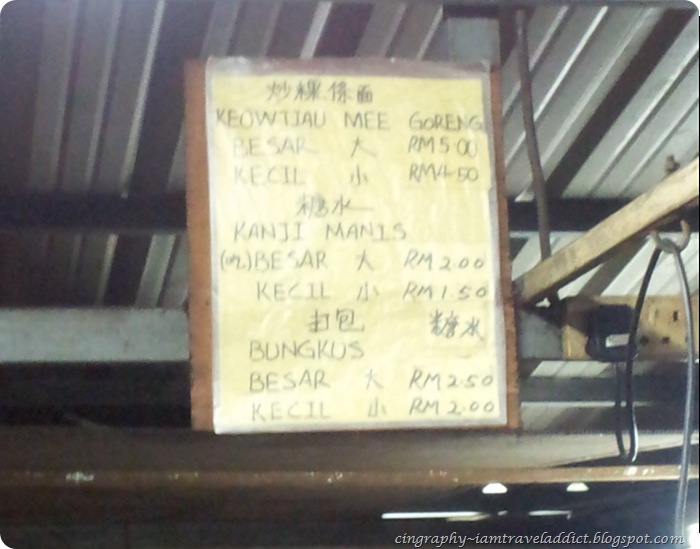 炒粿條面
KEOWTIAU MEE GORENG
BESAR 大 RM5.00
KECIL 小 RM4.50
糖水
KANJI MANIS
(吃) BESAR 大 RM2.00
KECIL 小 RM1.50
打包 糖水
BUNGKUS
BESAR 大 RM2.50
KECIL 小 RM2.00
cingraphy-iamtraveladdict.blogspot.com